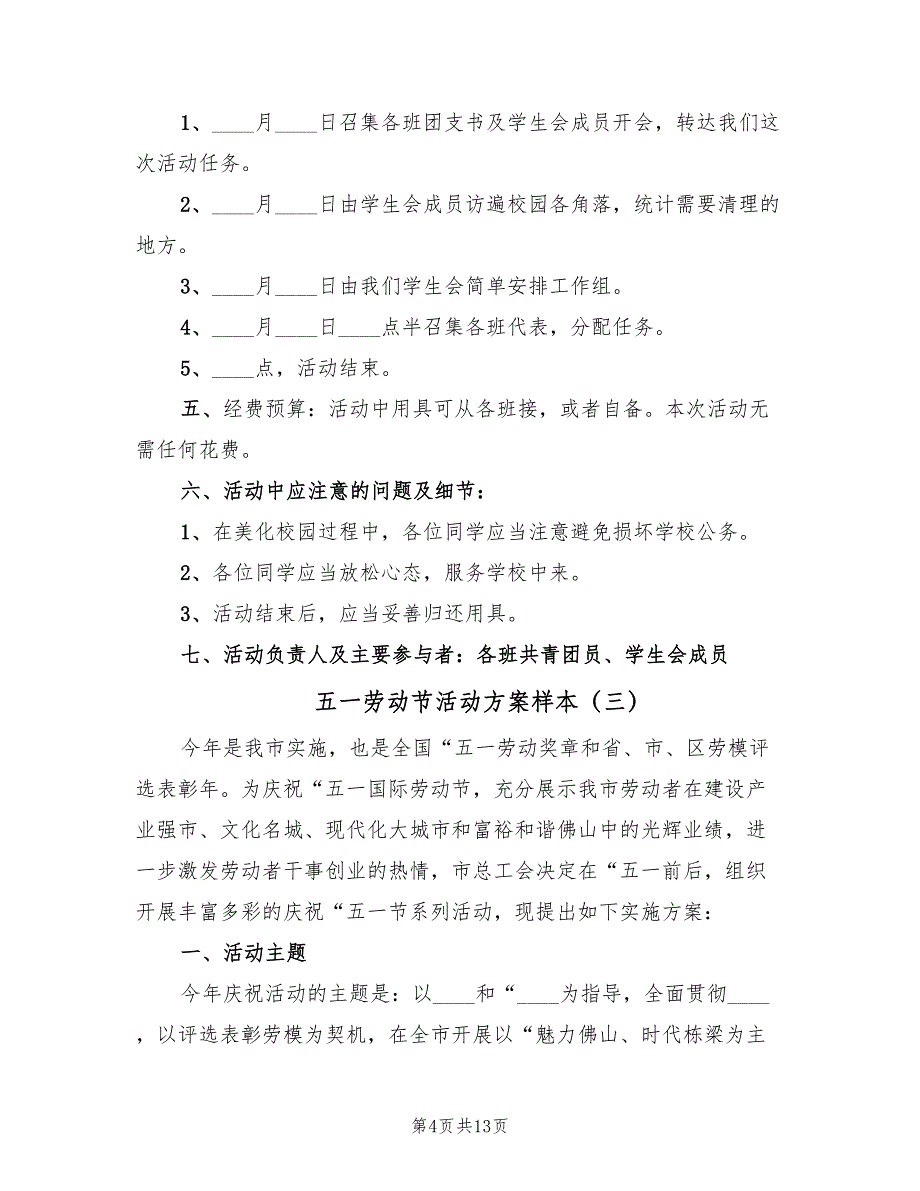 1、____月____日召集各班团支书及学生会成员开会，转达我们这
次活动任务。
2、____月____日由学生会成员访遍校园各角落，统计需要清理的
地方。
3、____月____日由我们学生会简单安排工作组。
4、____月____日____点半召集各班代表，分配任务。
5、____点，活动结束。
五、经费预算：活动中用具可从各班接，或者自备。本次活动无
需任何花费。
六、活动中应注意的问题及细节：
1、在美化校园过程中，各位同学应当注意避免损坏学校公务。
2、各位同学应当放松心态，服务学校中来。
3、活动结束后，应当妥善归还用具。
七、活动负责人及主要参与者：各班共青团员、学生会成员
五一劳动节活动方案样本（三）
今年是我市实施，也是全国“五一劳动奖章和省、市、区劳模评
选表彰年。为庆祝“五一国际劳动节，充分展示我市劳动者在建设产
业强市、文化名城、现代化大城市和富裕和谐佛山中的光辉业绩，进
一步激发劳动者干事创业的热情，市总工会决定在“五一前后，组织
开展丰富多彩的庆祝“五一节系列活动，现提出如下实施方案：
一、活动主题
今年庆祝活动的主题是：以____和“____为指导，全面贯彻____
，以评选表彰劳模为契机，在全市开展以“魅力佛山、时代栋梁为主
第4页共13页